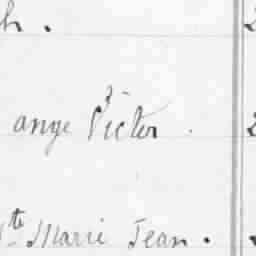 h.
ange Victor.
te Marie Jean.